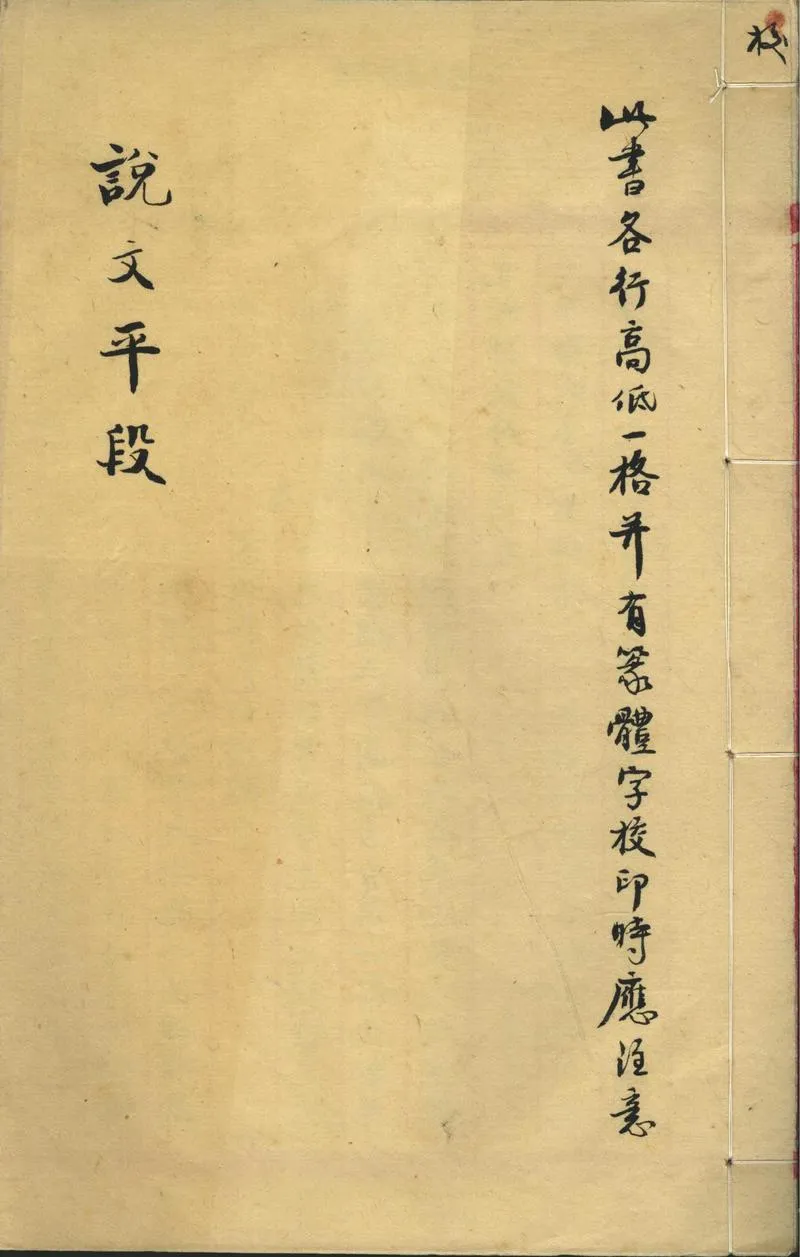 校
此書各行高低一格并有篆體字校印時應注意
說文平段